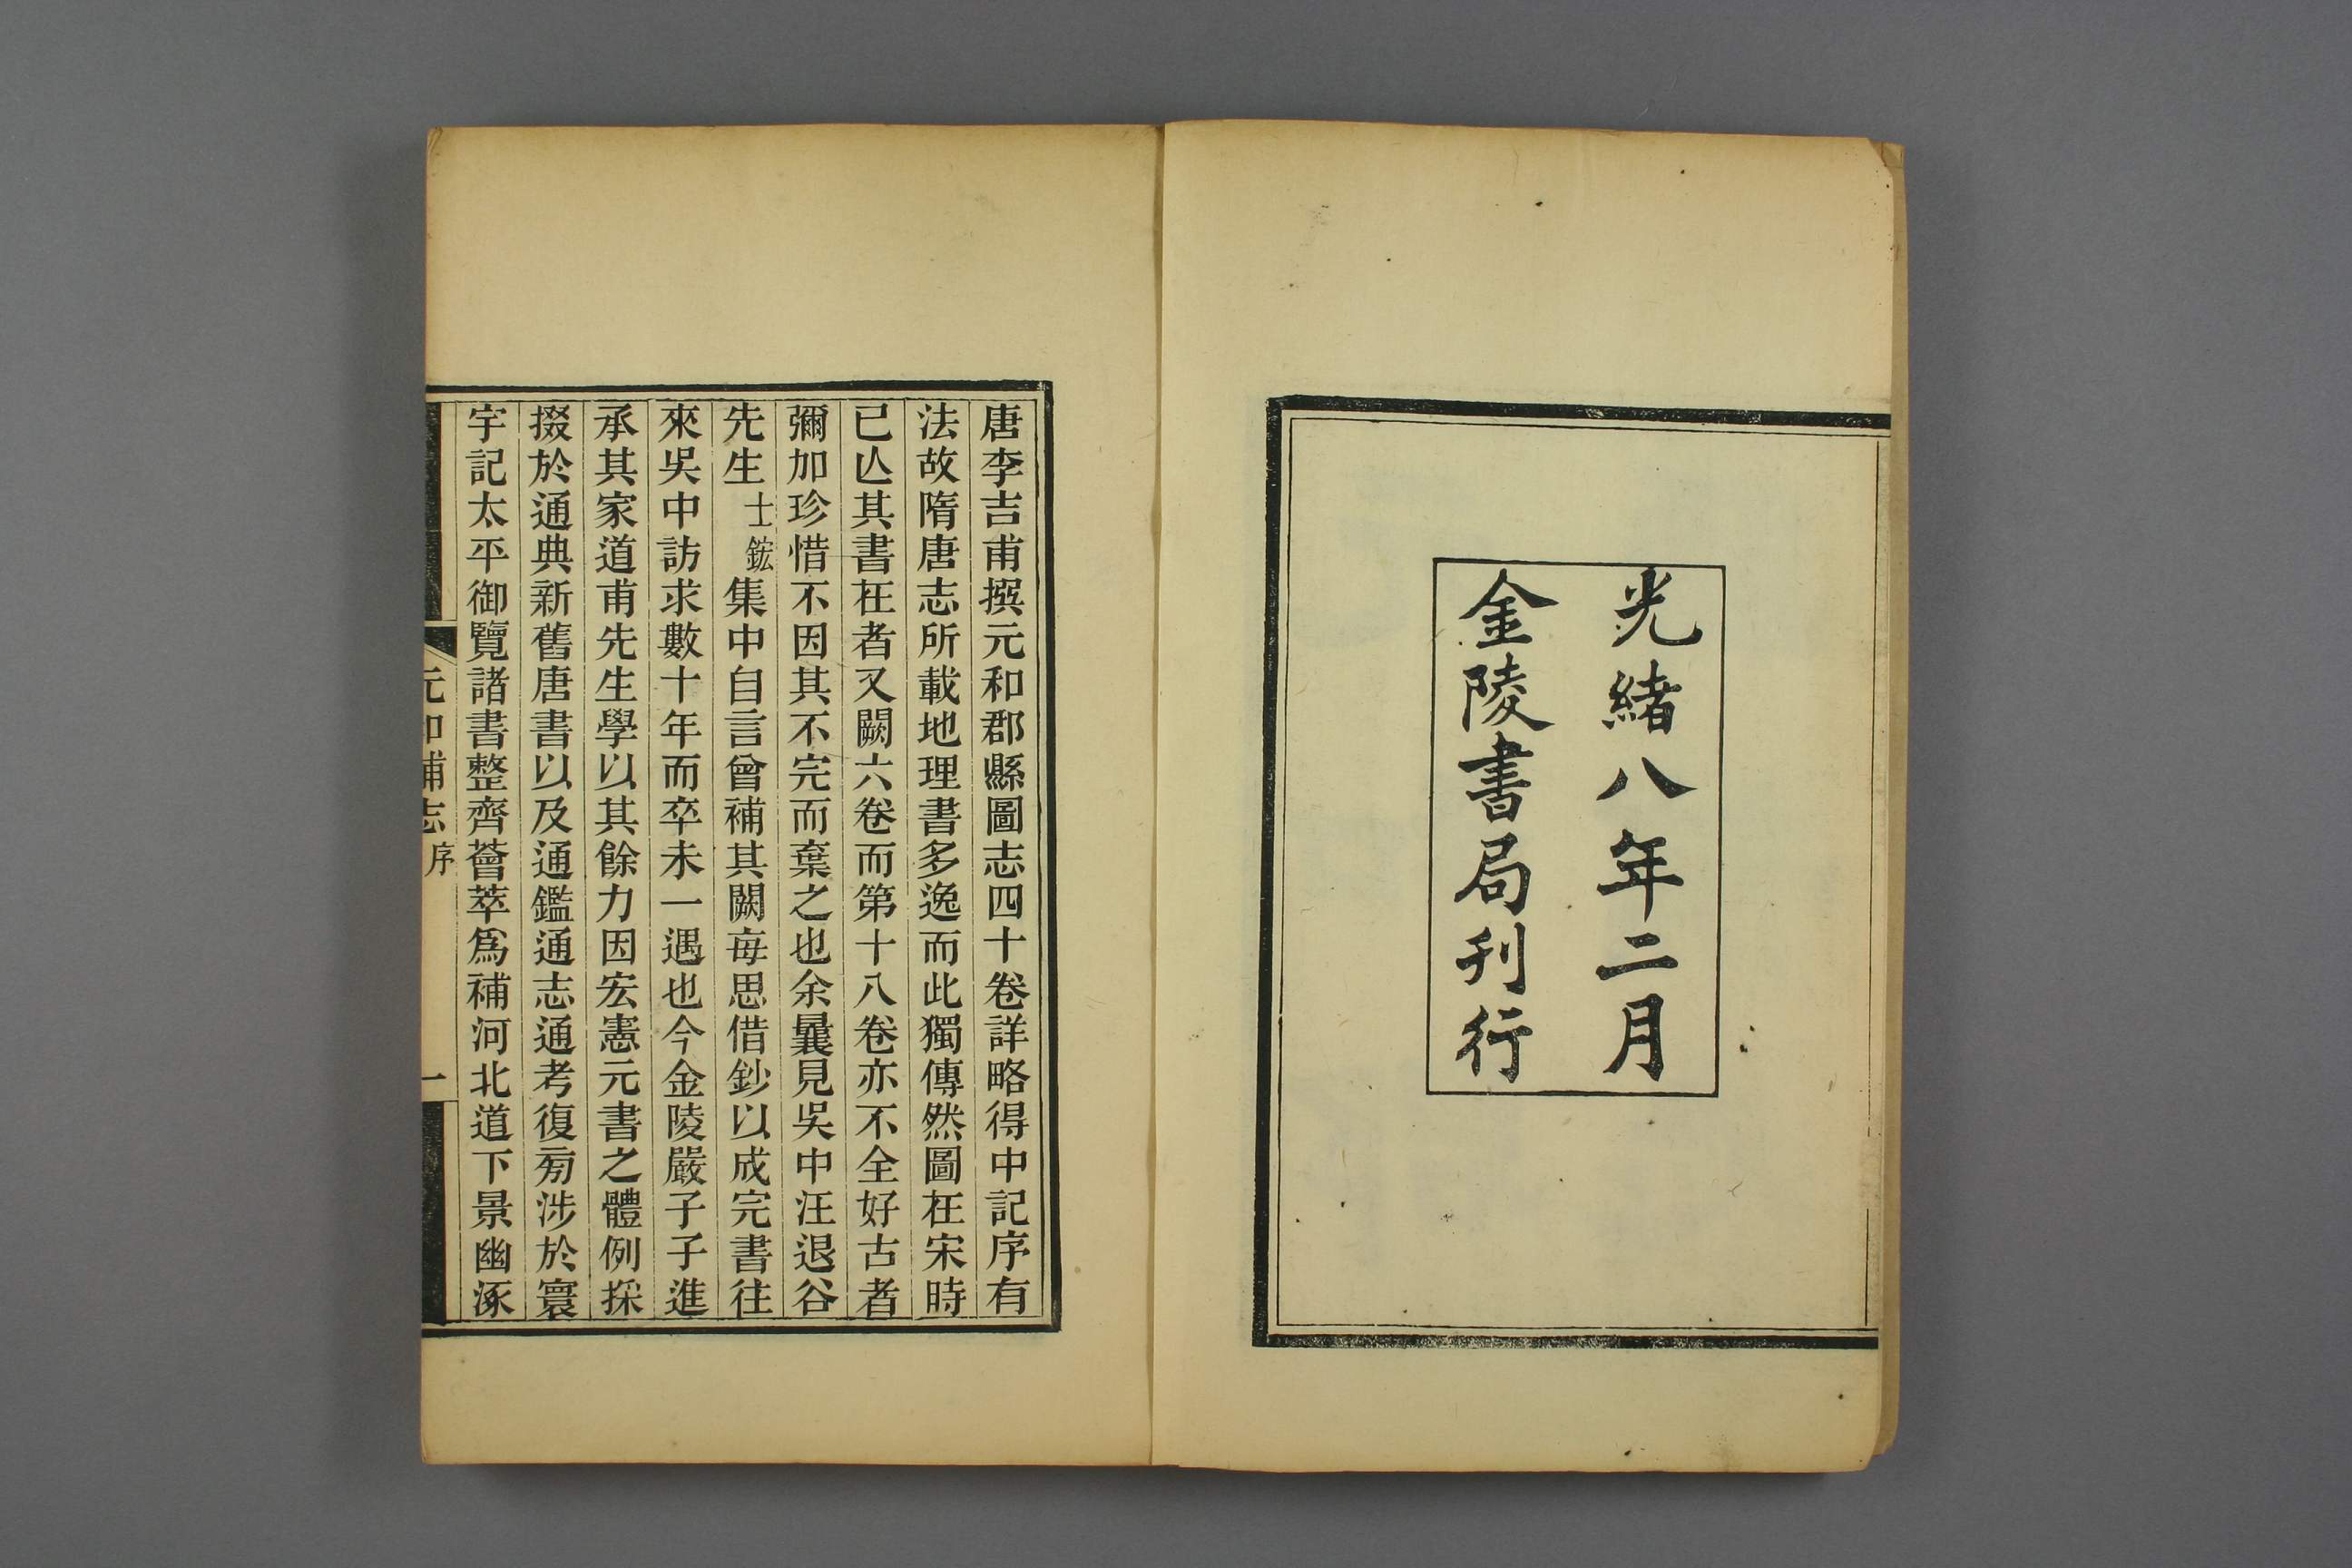 光緒八年二月
金陵書局刊行
唐李吉甫撰元和郡縣圖志四十卷詳略得中記序有
法故隋唐志所載地理書多逸而此獨傳然圖在宋時
已亾其書在者又闕六卷而第十八卷亦不全好古者
彌加珍惜不因其不完而棄之也余曩見吳中汪退谷
先生士鋐集中自言曾補其闕每思借鈔以成完書往
來吳中訪求數十年而卒未一遇也今金陵嚴子子進
承其家道甫先生學以其餘力因宏憲元書之體例採
掇於通典新舊唐書以及通鑑通志通考復旁涉於寰
宇記太平御覽諸書整齊薈萃爲補河北道下景幽涿
元和補志序
一